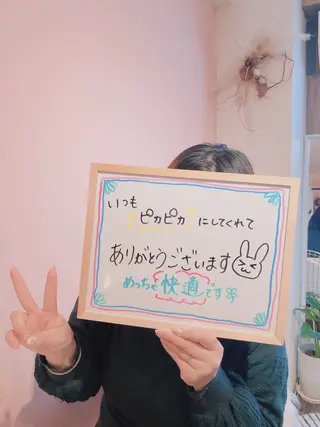 いつも
ピカピカにしてくれて
ありがとうございます
めっちゃ快適です